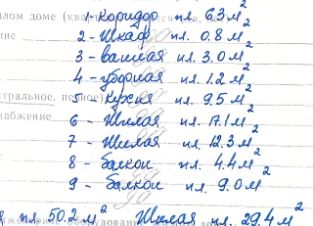 лом доме
1-Коридор пл. 6.3 м²
2-Шкаф пл. 0.8 м²
3-ванная пл. 3.0 м²
4-уборная пл. 1.2 м²
5-кухня пл. 9.5 м²
6-Жилая пл. 17.1 м²
7-Жилая пл. 12.3 м²
8-балкон пл. 4.4 м²
9-балкон пл. 9.0 м²
пл. 50.2 м² Жилая пл. 29.4 м²